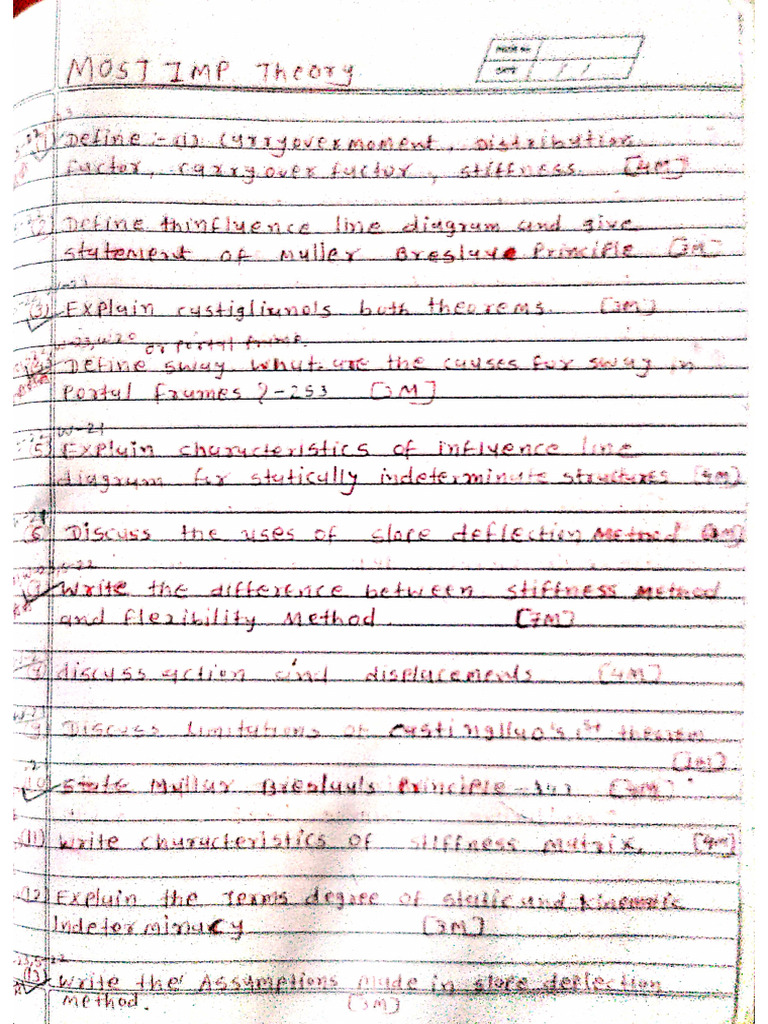 MOST IMP Theory
PAGE NO
DATE / /
(1) Define :- (1) Carryover moment, Distribution
factor, carryover factor, stiffness. [4M]
(2) Define influence line diagram and give
statement of Muller Breslave Principle [3M]
(3) Explain castigliuno's both theorems. [3M]
or portal frame.
Define sway what are the causes for sway in
Portal frames ? -253 [3M]
W-21
(5) Explain characteristics of influence line
diagram for statically indeterminate structures [4M]
(6) Discuss the uses of slope deflection Method
(7) Write the difference between stiffness Method
and flexibility Method. [7M]
discuss action and displacements [4M]
Discuss limitations of Castinglluo's 1st theorem
[3M]
State Mullar Breslau's Principle -
(11) Write characteristics of stiffness matrix. [4M]
(12) Explain the Terms degree of static and kinematic
Indeterminacy [3M]
(13) Write the Assumptions made in slope deflection
method. [3M]